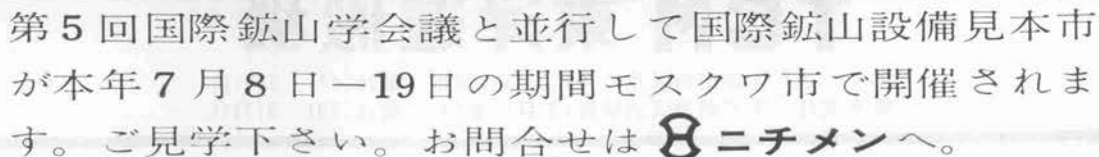 第5回国際鉱山学会議と並行して国際鉱山設備見本市
が本年7月8日—19日の期間モスクワ市で開催されま
す。ご見学下さい。お問合せはニチメンへ。